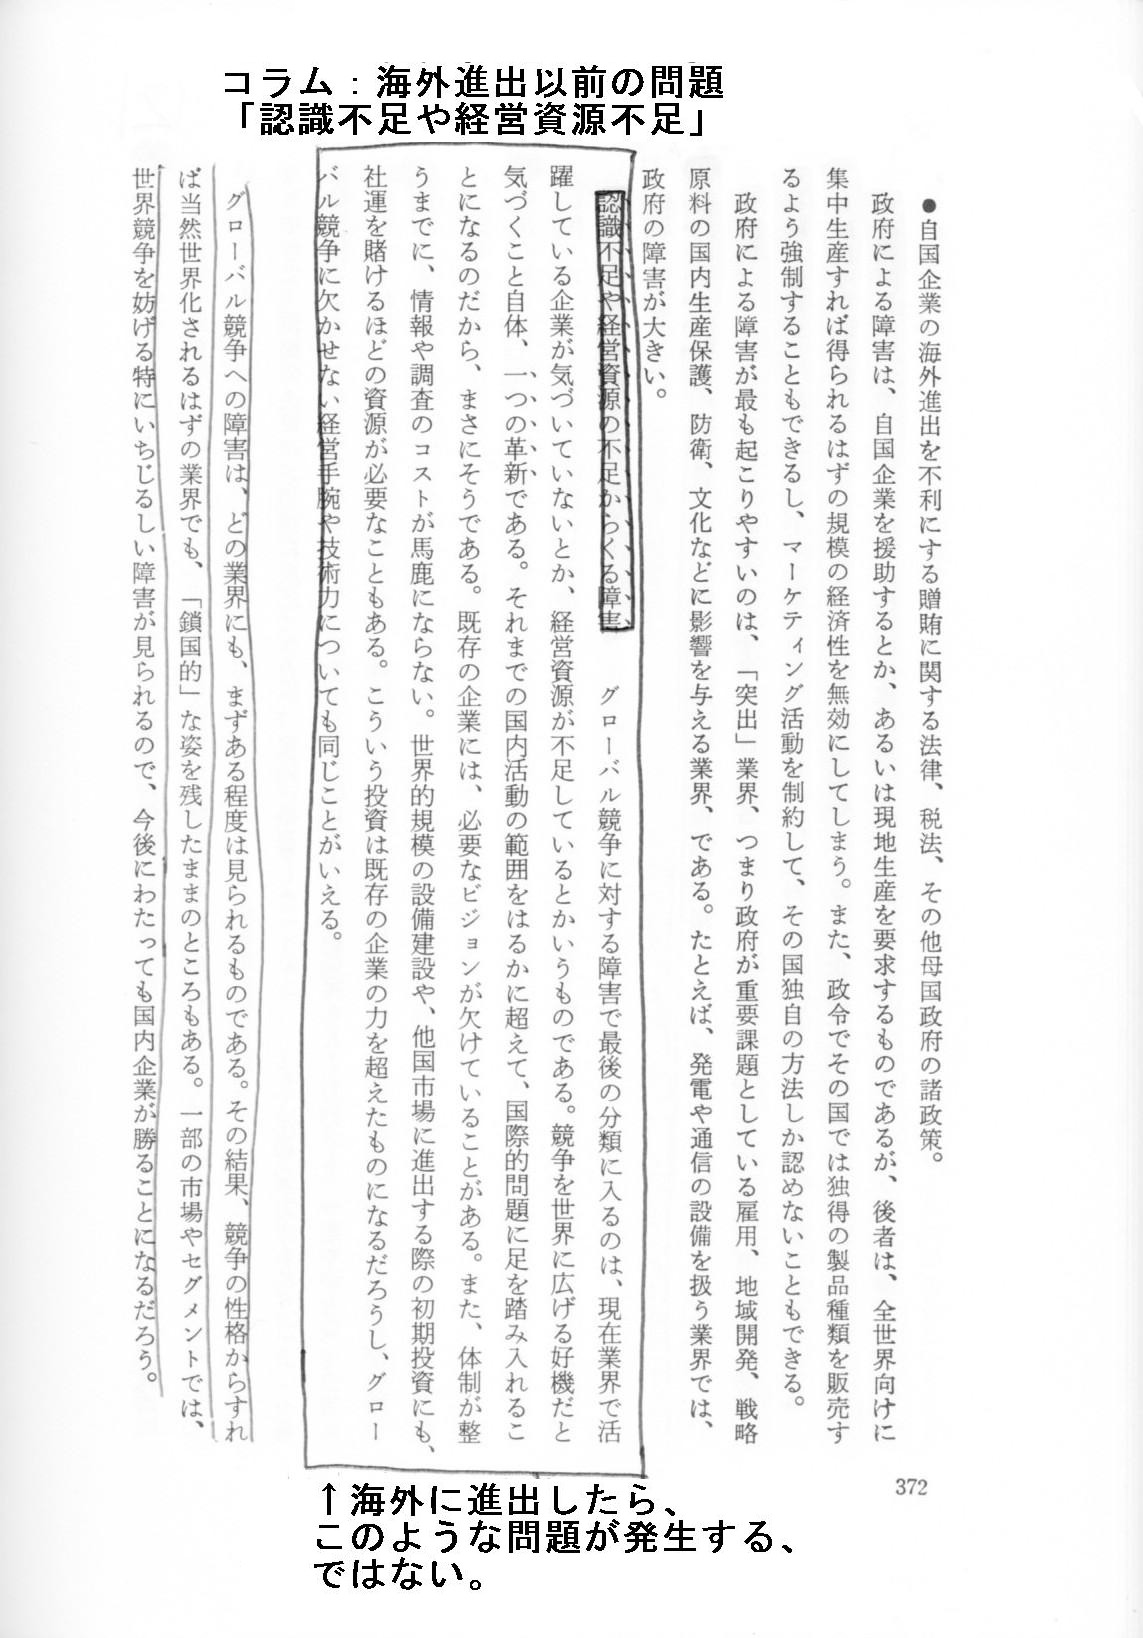 コラム：海外進出以前の問題
「認識不足や経営資源不足」
●自国企業の海外進出を不利にする贈賄に関する法律、税法、その他母国政府の諸政策。
政府による障害は、自国企業を援助するとか、あるいは現地生産を要求するものであるが、後者は、全世界向けに
集中生産すれば得られるはずの規模の経済性を無効にしてしまう。また、政令でその国では独得の製品種類を販売す
るよう強制することもできるし、マーケティング活動を制約して、その国独自の方法しか認めないこともできる。
政府による障害が最も起こりやすいのは、「突出」業界、つまり政府が重要課題としている雇用、地域開発、戦略
原料の国内生産保護、防衛、文化などに影響を与える業界、である。たとえば、発電や通信の設備を扱う業界では、
政府の障害が大きい。
認識不足や経営資源の不足からくる障害　グローバル競争に対する障害で最後の分類に入るのは、現在業界で活
躍している企業が気づいていないとか、経営資源が不足しているとかいうものである。競争を世界に広げる好機だと
気づくこと自体、一つの革新である。それまでの国内活動の範囲をはるかに超えて、国際的問題に足を踏み入れるこ
とになるのだから、まさにそうである。既存の企業には、必要なビジョンが欠けていることがある。また、体制が整
うまでに、情報や調査のコストが馬鹿にならない。世界的規模の設備建設や、他国市場に進出する際の初期投資にも、
社運を賭けるほどの資源が必要なこともある。こういう投資は既存の企業の力を超えたものになるだろうし、グロー
バル競争に欠かせない経営手腕や技術力についても同じことがいえる。
グローバル競争への障害は、どの業界にも、まずある程度は見られるものである。その結果、競争の性格からすれ
ば当然世界化されるはずの業界でも、「鎖国的」な姿を残したままのところもある。一部の市場やセグメントでは、
世界競争を妨げる特にいちじるしい障害が見られるので、今後にわたっても国内企業が勝ることになるだろう。
372
↑海外に進出したら、
このような問題が発生する、
ではない。